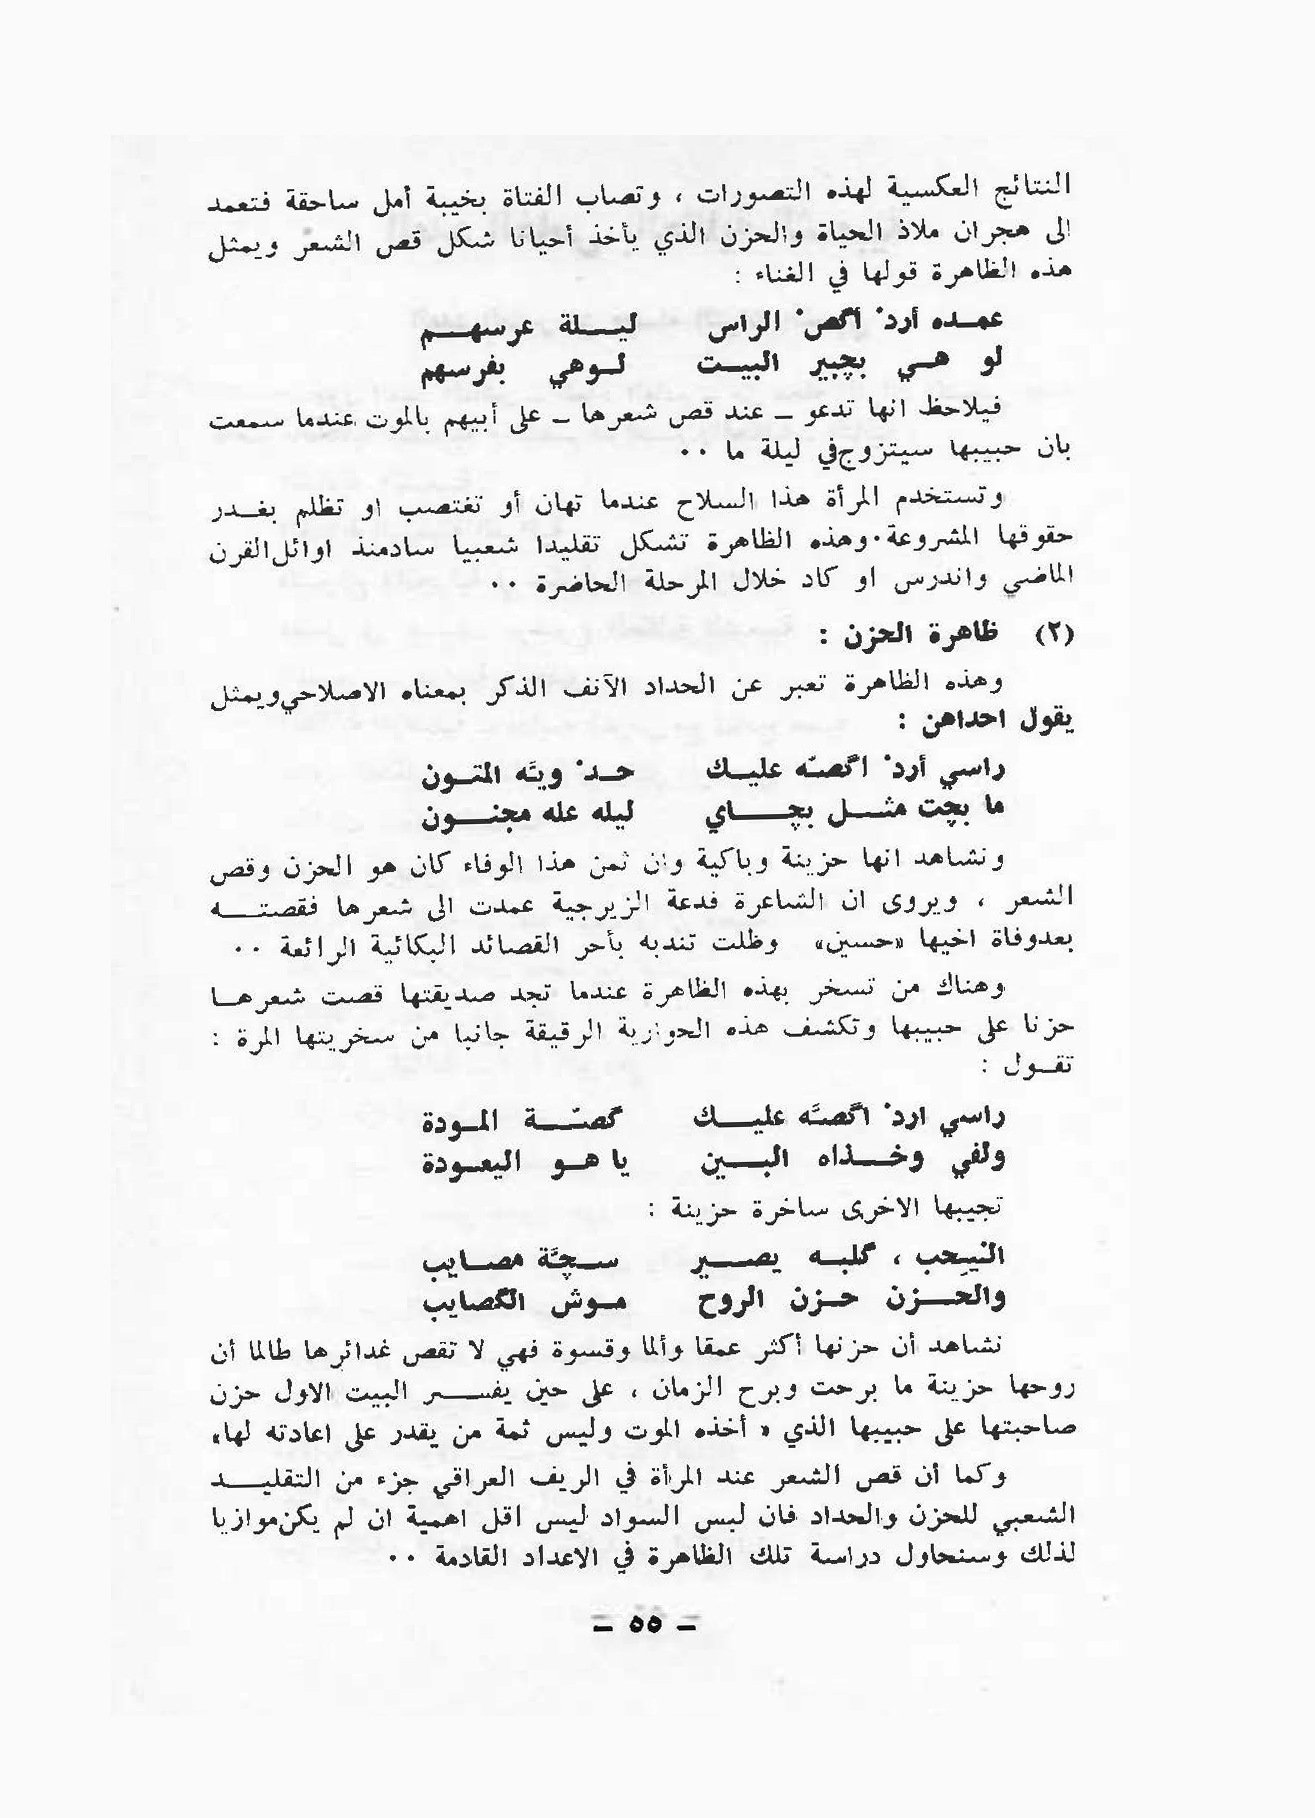 النتائج العكسية لهذه التصورات ، وتصاب الفتاة بخيبة أمل ساحقة فتعمد
الى هجران ملاذ الحياة والحزن الذي يأخذ أحيانا شكل قص الشعر ويمثل
هذه الظاهرة قولها في الغناء :
عمـده أردْ أگصْ الراس ليـــلة عرسهـــم
لو هـي بچبير البيـــت لـوهي بفرسهم
فيلاحظ انها تدعو ــ عند قص شعرها ــ على أبيهم بالموت عندما سمعت
بان حبيبها سيتزوج في ليلة ما ٠٠
وتستخدم المرأة هذا السلاح عندما تهان أو تغتصب او تظلم بغـدر
حقوقها المشروعة٠وهذه الظاهرة تشكل تقليدا شعبيا سادمنذ اوائل القرن
الماضي واندرس او كاد خلال المرحلة الحاضرة ٠٠
(٢) ظاهرة الحزن :
وهذه الظاهرة تعبر عن الحداد الآنف الذكر بمعناه الاصلاحي ويمثل
يقول احداهن :
راسي أردْ اگصّه عليـك حـدْ ويَّه المتـون
ما بچت مثـــل بچـــــاي ليله عله مجنـــون
ونشاهد انها حزينة وباكية وان ثمن هذا الوفاء كان هو الحزن وقص
الشعر ، ويروى ان الشاعرة فدعة الزيرجية عمدت الى شعرها فقصتـــه
بعدوفاة اخيها «حسين» وظلت تندبه بأحر القصائد البكائية الرائعة ٠٠
وهناك من تسخر بهذه الظاهرة عندما تجد صديقتها قصت شعرهـا
حزنا على حبيبها وتكشف هذه الحوارية الرقيقة جانبا من سخريتها المرة :
تقـول :
راسي اردْ اگصَّه عليـــك گصّــــة المـودة
ولفي وخـــذاه البـــين يا هـو اليعـودة
تجيبها الاخرى ساخرة حزينة :
النيِحب ، گلبـه يصـــير سـچَّة مصـايب
والحـــزن حـزن الروح مـوش الگصايب
نشاهد أن حزنها أكثر عمقا وألما وقسوة فهي لا تقص غدائرها طالما أن
روحها حزينة ما برحت وبرح الزمان ، على حين يفســـر البيت الاول حزن
صاحبتها على حبيبها الذي « أخذه الموت وليس ثمة من يقدر على اعادته لها»
وكما أن قص الشعر عند المرأة في الريف العراقي جزء من التقليـــد
الشعبي للحزن والحداد فان لبس السواد ليس اقل اهمية ان لم يكن موازيا
لذلك وسنحاول دراسة تلك الظاهرة في الاعداد القادمة ٠٠
ــ ٥٥ ــ